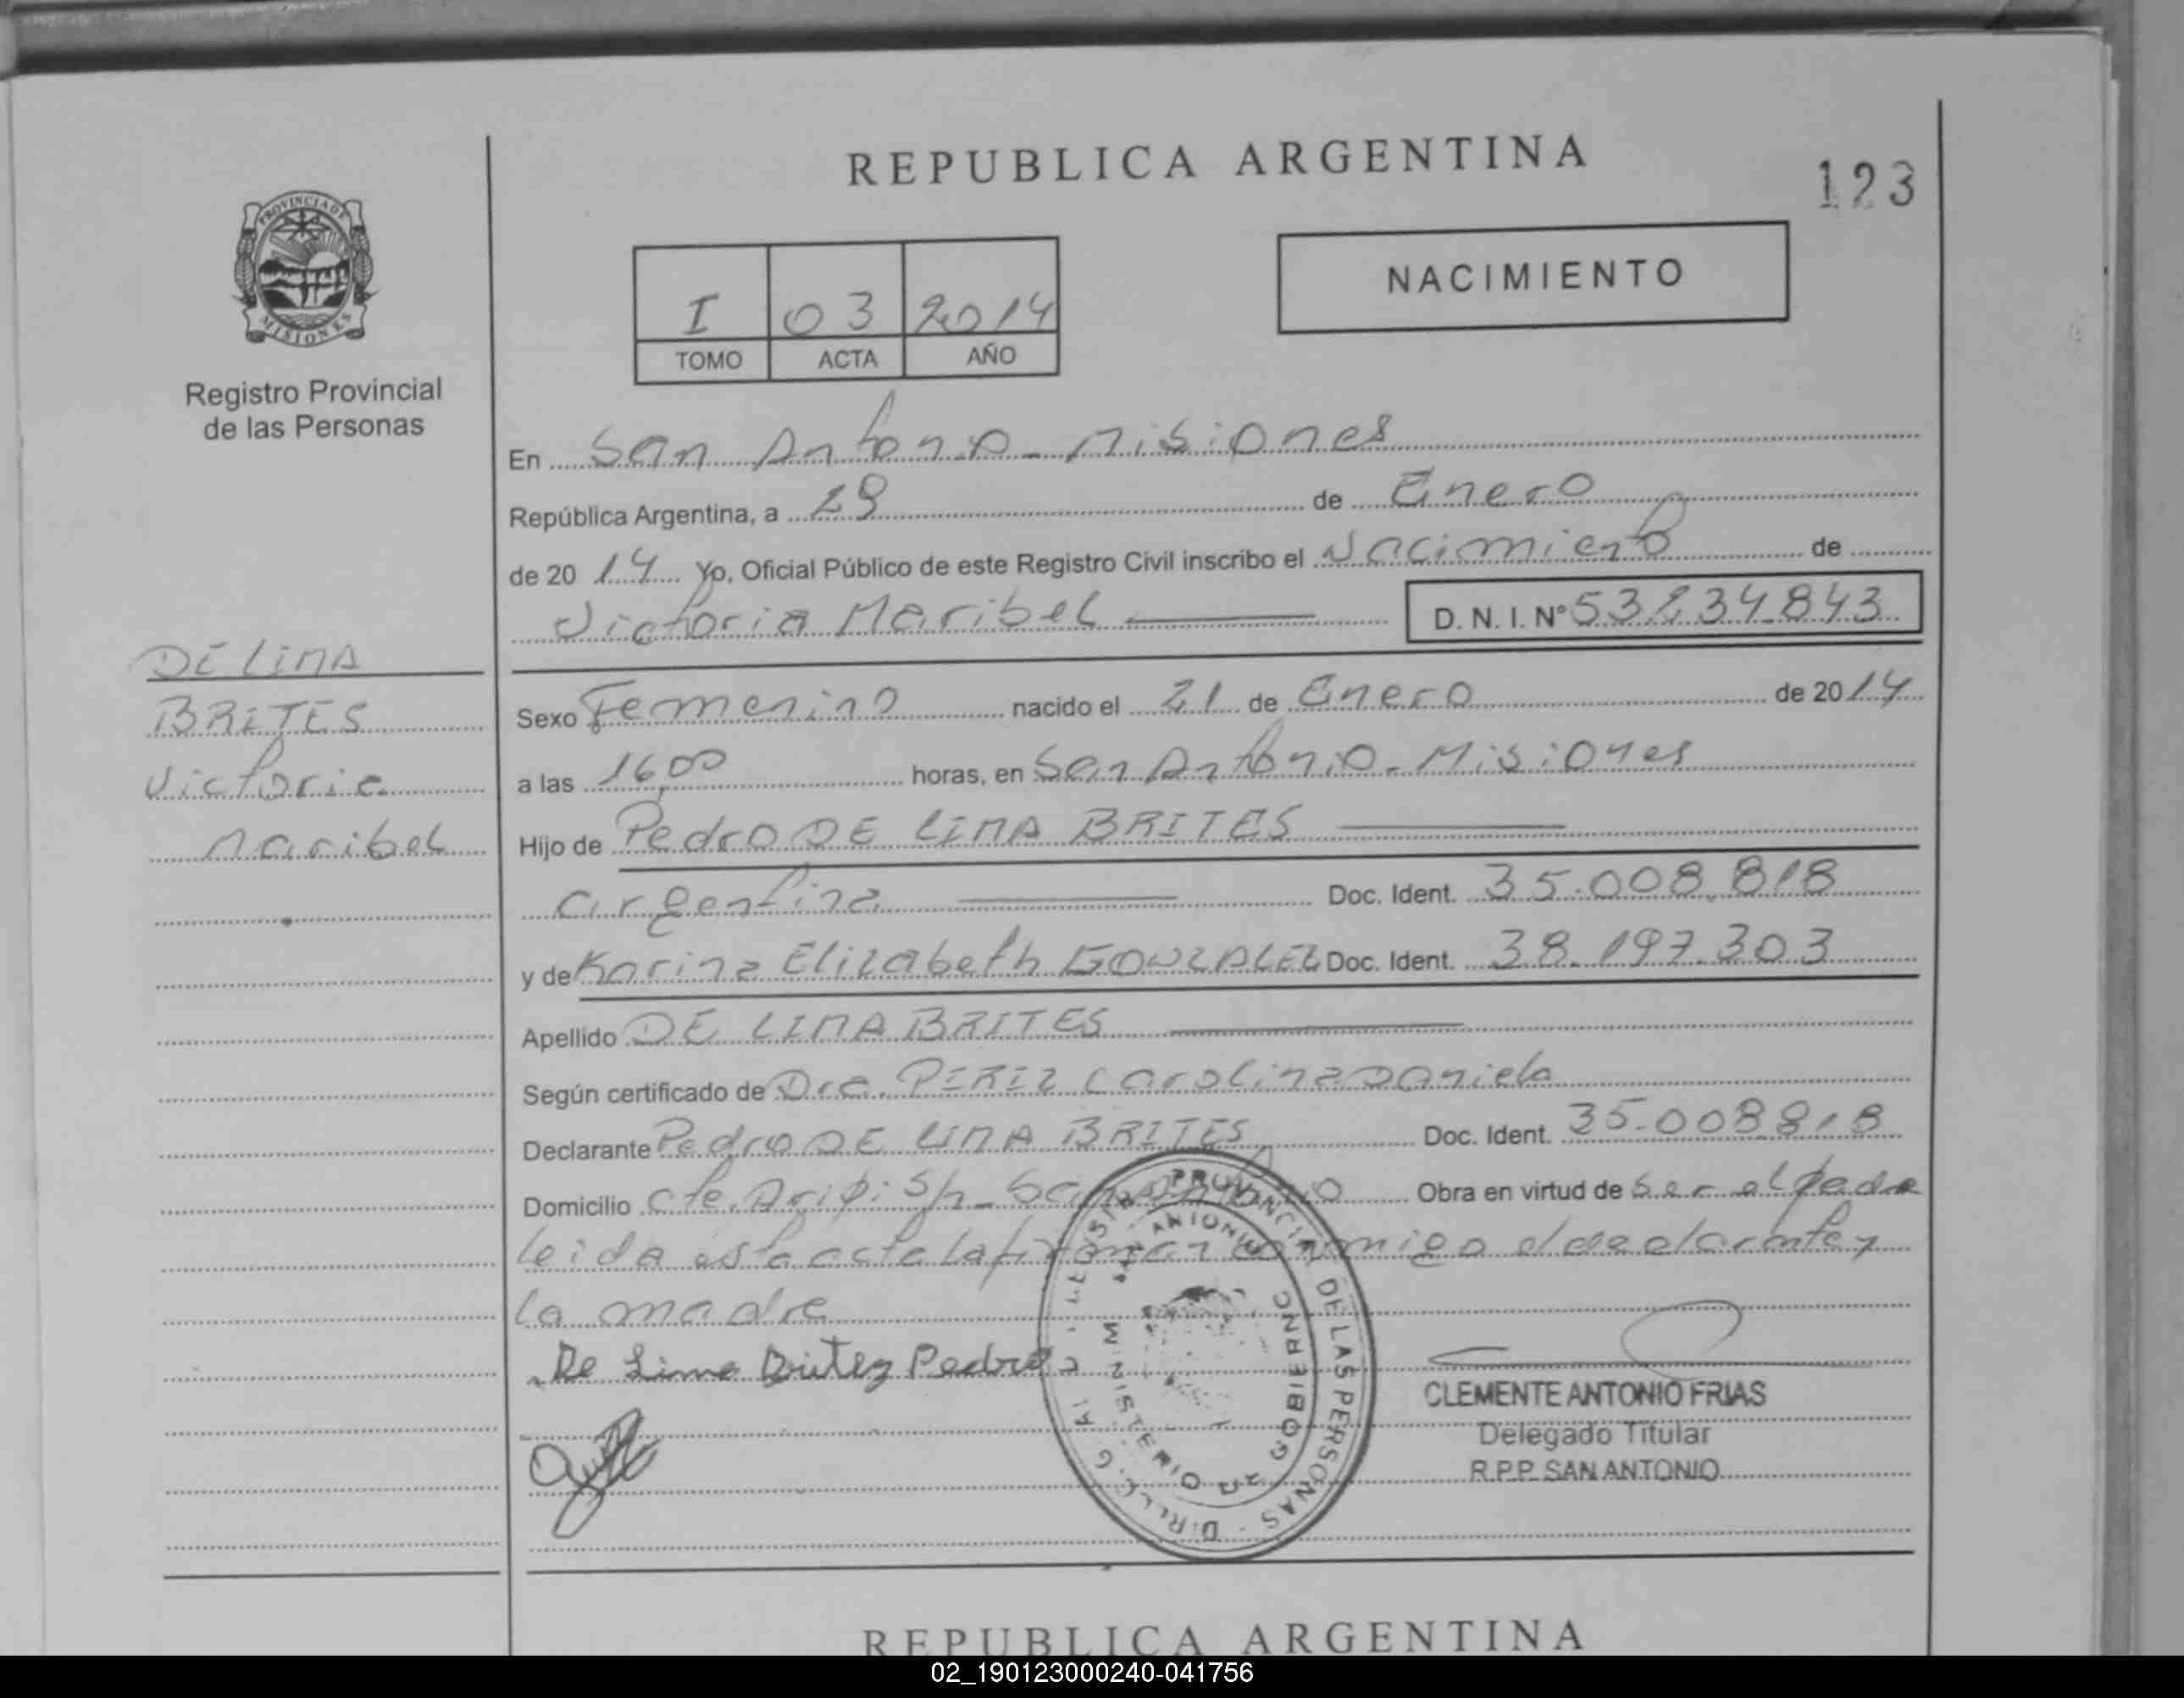 REPUBLICA ARGENTINA
123
PROVINCIA DE
MISIONES
Registro Provincial
de las Personas
NACIMIENTO
I 03 2014
TOMO ACTA AÑO
En San Antonio - Misiones
República Argentina, a 29 de Enero
de 20 14 Yo, Oficial Público de este Registro Civil inscribo el Nacimiento de
Victoria Maribel
D. N. I. Nº 53.234.843
DE LIMA
BRITES
Victoria
Maribel
Sexo Femenino nacido el 21 de Enero de 20 14
a las 16,00 horas, en San Antonio - Misiones
Hijo de Pedro DE LIMA BRITES
argentina Doc. Ident. 35.008.818
y de Karina Elizabeth GONZALEZ Doc. Ident. 38.197.303
Apellido DE LIMA BRITES
Según certificado de Dra. PEREZ Carolina Daniela
Declarante Pedro DE LIMA BRITES Doc. Ident. 35.008.818
Domicilio S/n - San Antonio Obra en virtud de ser el padre
leida esta acta la firman conmigo el declarante y
la madre
De Lima Britez Pedro
PROVINCIAL DE LAS PERSONAS
SAN ANTONIO
MINISTERIO DE GOBIERNO
CLEMENTE ANTONIO FRIAS
Delegado Titular
R.P.P. SAN ANTONIO
REPUBLICA ARGENTINA
02_190123000240-041756